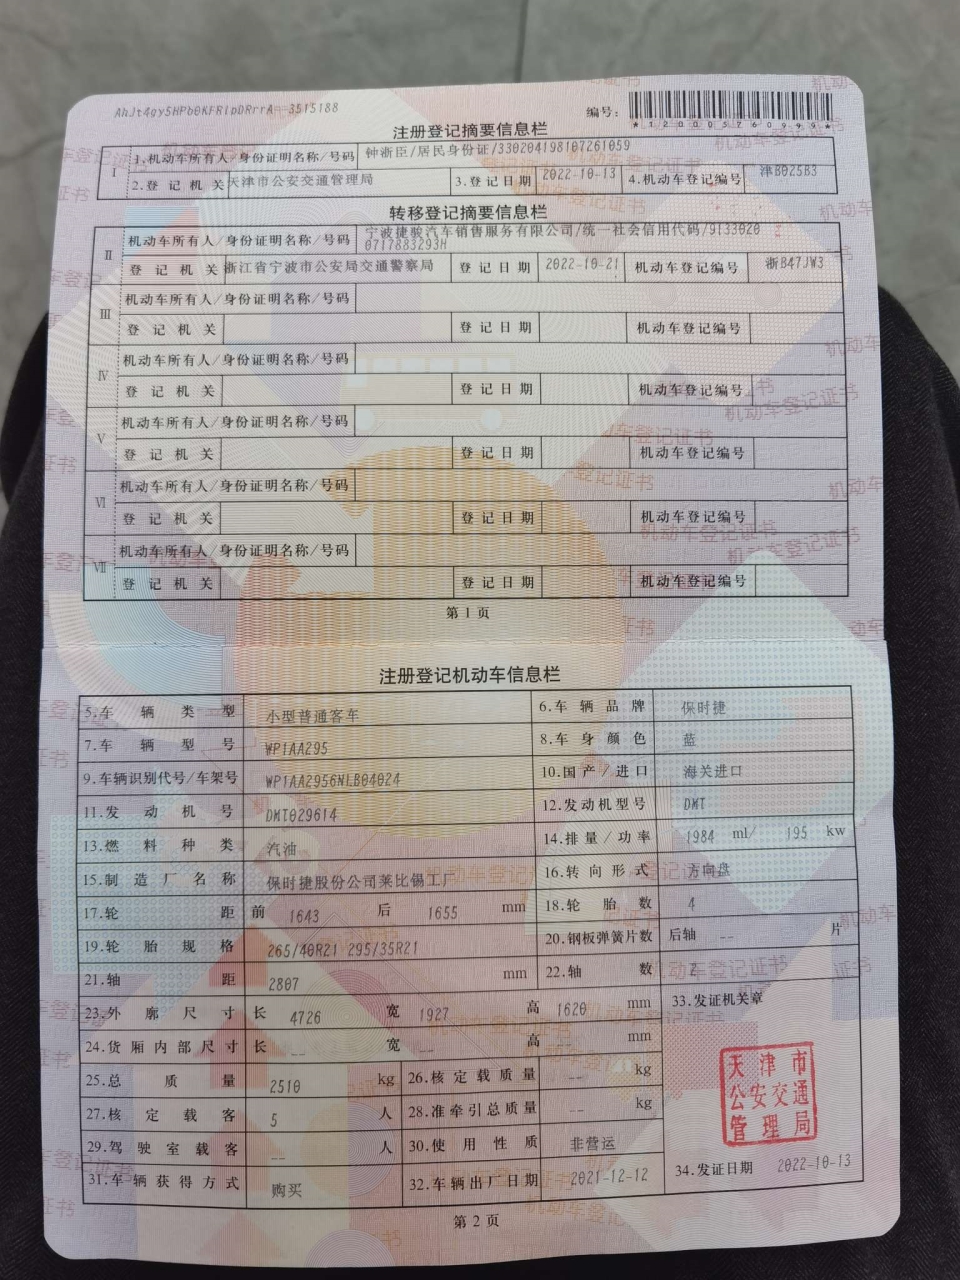 AhJt4gy5HPb0KFRlpDRrrA==3515188
编号：
*120005760999*
注册登记摘要信息栏
Ⅰ 1.机动车所有人/身份证明名称/号码 钟浙臣/居民身份证/330204198107261059
2.登记机关 天津市公安交通管理局 3.登记日期 2022-10-13 4.机动车登记编号 津B025B3
转移登记摘要信息栏
Ⅱ 机动车所有人/身份证明名称/号码 宁波捷骏汽车销售服务有限公司/统一社会信用代码/9133020
0717883293H
登记机关 浙江省宁波市公安局交通警察局 登记日期 2022-10-21 机动车登记编号 浙B47JW3
Ⅲ 机动车所有人/身份证明名称/号码
登记机关 登记日期 机动车登记编号
Ⅳ 机动车所有人/身份证明名称/号码
登记机关 登记日期 机动车登记编号
Ⅴ 机动车所有人/身份证明名称/号码
登记机关 登记日期 机动车登记编号
Ⅵ 机动车所有人/身份证明名称/号码
登记机关 登记日期 机动车登记编号
Ⅶ 机动车所有人/身份证明名称/号码
登记机关 登记日期 机动车登记编号
第1页
注册登记机动车信息栏
5.车辆类型 小型普通客车 6.车辆品牌 保时捷
7.车辆型号 WP1AA295 8.车身颜色 蓝
9.车辆识别代号/车架号 WP1AA2956NLB04024 10.国产/进口 海关进口
11.发动机号 DMT029614 12.发动机型号 DMT
13.燃料种类 汽油 14.排量/功率 1984 ml/ 195 kw
15.制造厂名称 保时捷股份公司莱比锡工厂 16.转向形式 方向盘
17.轮距 前 1643 后 1655 mm 18.轮胎数 4
19.轮胎规格 265/40R21 295/35R21 20.钢板弹簧片数 后轴 -- 片
21.轴距 2807 mm 22.轴数 2
23.外廓尺寸 长 4726 宽 1927 高 1620 mm 33.发证机关章
24.货厢内部尺寸 长 -- 宽 -- 高 -- mm
25.总质量 2510 kg 26.核定载质量 -- kg
27.核定载客 5 人 28.准牵引总质量 -- kg
29.驾驶室载客 -- 人 30.使用性质 非营运
31.车辆获得方式 购买 32.车辆出厂日期 2021-12-12
天津市
公安交通
管理局
34.发证日期 2022-10-13
第2页